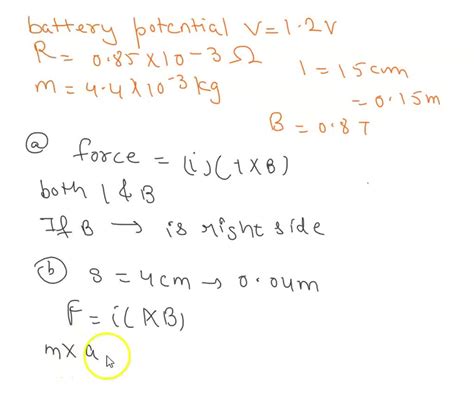 battery potential V=1.2V
R = 0.85×10-3 Ω
m = 4.4×10-3 kg
l = 15cm
= 0.15m
B = 0.8T
(a) force = (i)(l×B)
both l & B
If B → is right side
(b) s = 4cm → 0.04m
F = i(l×B)
m×a